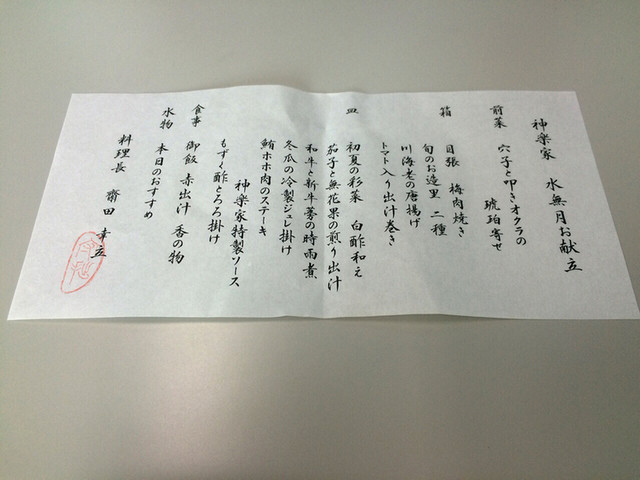 神楽家 水無月お献立
前菜 穴子と叩きオクラの
琥珀寄せ
箱 目張 梅肉焼き
旬のお造里 二種
川海老の唐揚げ
トマト入り出汁巻き
皿 初夏の彩菜 白酢和え
茄子と無花果の煎り出汁
和牛と新牛蒡の時雨煮
冬瓜の冷製ジュレ掛け
鮪ホホ肉のステーキ
神楽家特製ソース
もずく酢とろろ掛け
食事 御飯 赤出汁 香の物
水物 本日のおすすめ
料理長 齋田 幸立